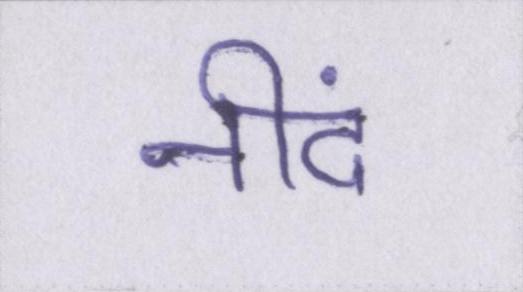 नीदं